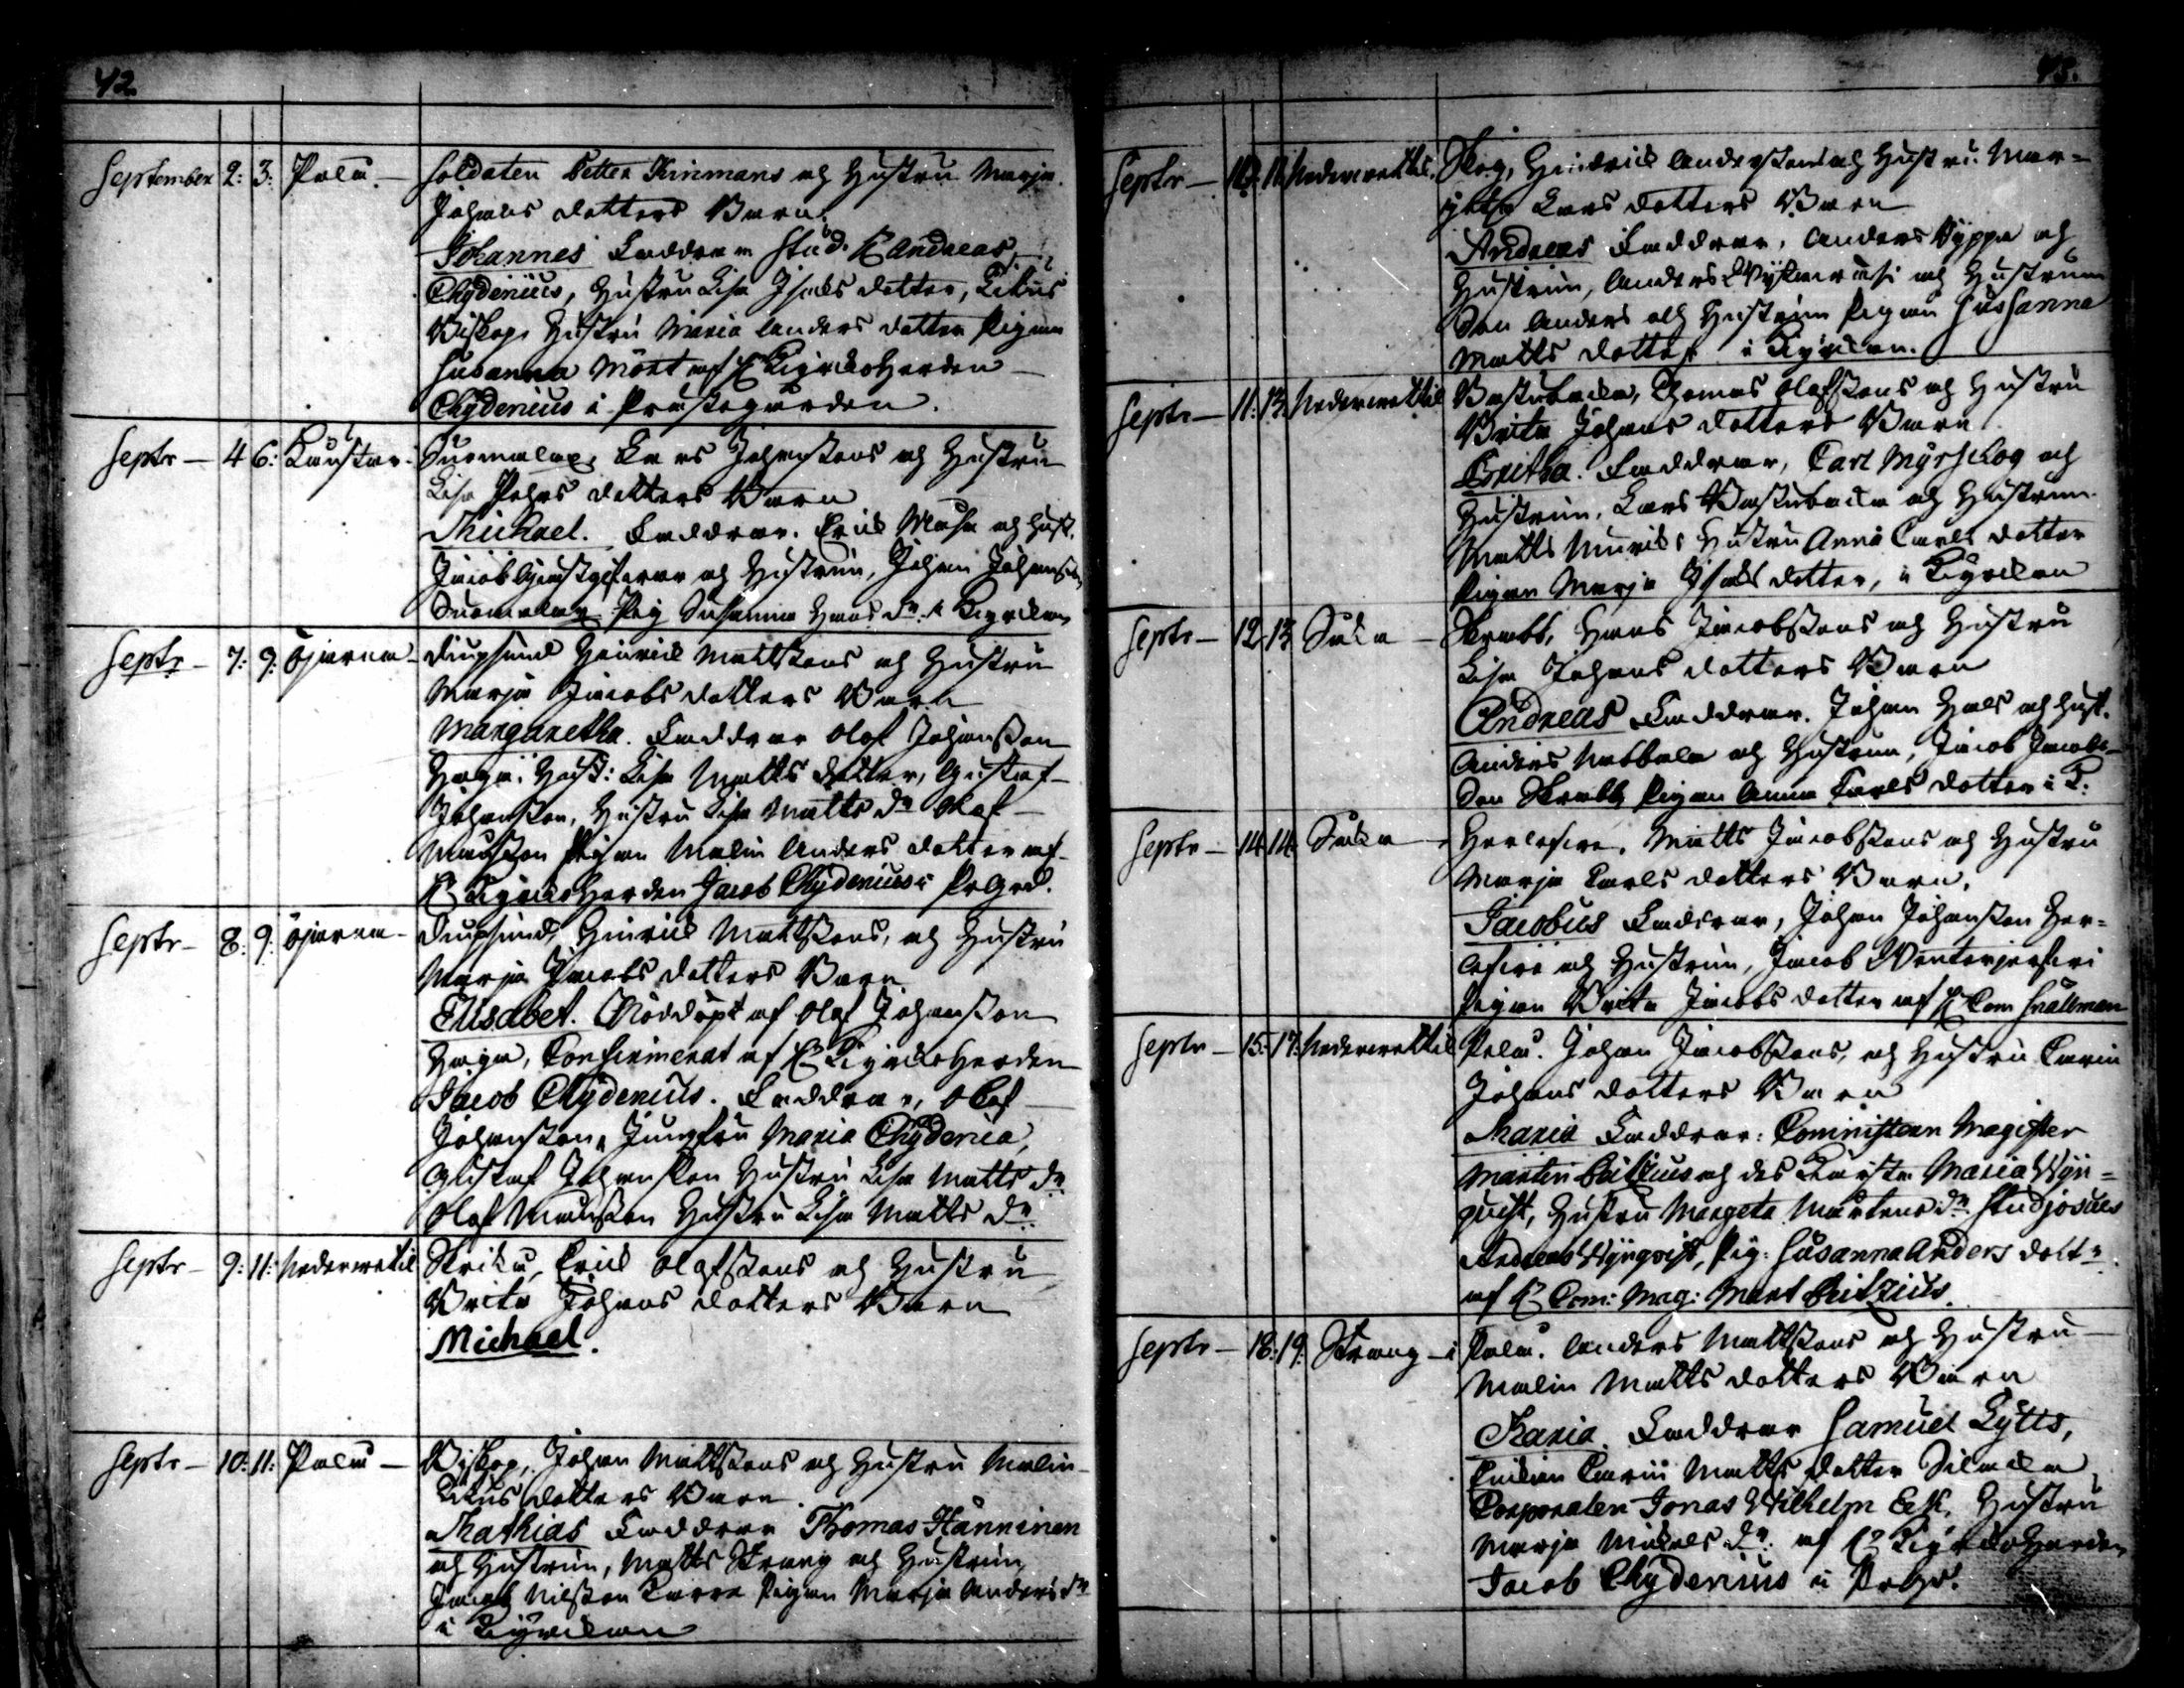 42
September 2: 3: Palu. — Soldaten Petter Kinmans och Hustru Marja
Johans dotters Barn.
Johannes Faddrar Stud. H Andreas
Chydenius, Hustru Lisa Isaks dotter, Titus
Biskop, Hustru Maria Anders dotter Pigan
Susanna Mört af H Kyrckoherden
Chydenius i Prästegården.
Septr — 4 6: Kaustar. Suomalax, Lars Johanssons och Hustru
Lisa Pehrs dotters Barn
Michael. Faddrar. Erick Masa och Hust.
Jacob Gjästgifvare och Hustrun, Johan Johansson
Suomalax Pig Susanna Hans dr. i Kyrckan
Septr — 7: 9: Öjarna — Diupsund Hinrick Mattssons och Hustru
Marja Jacobs dotters Barn
Margaretha. Faddrar Olof Johansson
Haga. Hust: Lisa Matts dotter, Gustaf
Johansson, Hustru Lisa Matts dr Olof
Mansson Pigan Malin Anders dotter af
H Kyrckoherden Jacob Chydenius i Prgrd.
Septr — 8: 9: Öjarna — Diupsund, Hinrick Mattssons, och Hustru
Marja Jacobs dotters Barn
Elisabet. Nöddöpt af Olof Johansson
Haga, Confirmerat af H Kyrckoherden
Jacob Chydenius. Faddrar, Olof
Johansson, Jungfru Maria Chydenia,
Gustaf Johansson Hustru Lisa Matts dr
Olof Mansson Hustru Lisa Matts dr.
Septr — 9: 11: Nedervetil Skriku, Erick Olofssons och Hustru
Brita Johans dotters Barn
Michael.
Septr — 10: 11: Palu — Biskop, Johan Mattssons och Hustru Malin
Titus dotters Barn.
Mathias Faddrar Thomas Hänninen
och Hustrun, Matts Strang och Hustrun
Jacob Nilsson Pigan Marja Anders dr
i Kyrckan
43.
Septr — 10: 11: Nedervettil. Skog, Hindrick Anderssons och Hustru Mar=
 Lars dotters Barn
Andreas Faddrar, Anders och
Hustrun, Anders och Hustrun
Son Anders och Hustrun Pigan Sussanna
Matts dotter i Kyrckan.
Septr — 11: 13: Nedervettil Bastubacka, Thomas Olofssons och Hustru
Brita Johans dotters Barn
Bretha. Faddrar, Carl Myrskog och
Hustrun, Lars Bastubacka och Hustrun
Matts Hustru Anna Carls dotter
Pigan Marja Isaks dotter, i Kyrckan
Septr — 12: 13 Såka — Skrabb, Hans Jacobssons och Hustru
Lisa Johans dotters Barn
Andreas Faddrar. Johan Hals och Hust.
Anders Nabbala och Hustrun, Jacob Jacobs=
son Skrabb Pigan Anna Carls dotter i K.
Septr — 14: 14: Såka — Herlefire, Matts Jacobssons och Hustru
Marja Carls dotters Barn.
Jacobus Faddrar, Johan Johansson Her=
lefire och Hustrun, Jacob
Pigan Brita Jacobs dotter af H Com Snällman
Septr — 15: 17: Nedervettil Palu. Johan Jacobssons, och Hustru Carin
Johans dotters Barn
Maria Faddrar: Cominstern Magister
Mårten och des Maria Nyn=
quist, Hustru Margeta Mårtens dr. Studjosus
Andreas Nynqvist, Pig: Susanna Anders dottr
af H Com: Mag: Mårt
Septr — 18: 19: Strang — i Palu. Anders Mattssons och Hustru
Malin Matts dotters Barn
Maria. Faddrar Samuel Kytts,
 Carin Matts dotter
Corporalen Jonas Wilhelm Eek, Hustru
Marja Mickels dr. af H Kyrckoherden
Jacob Chydenius i Prgr.